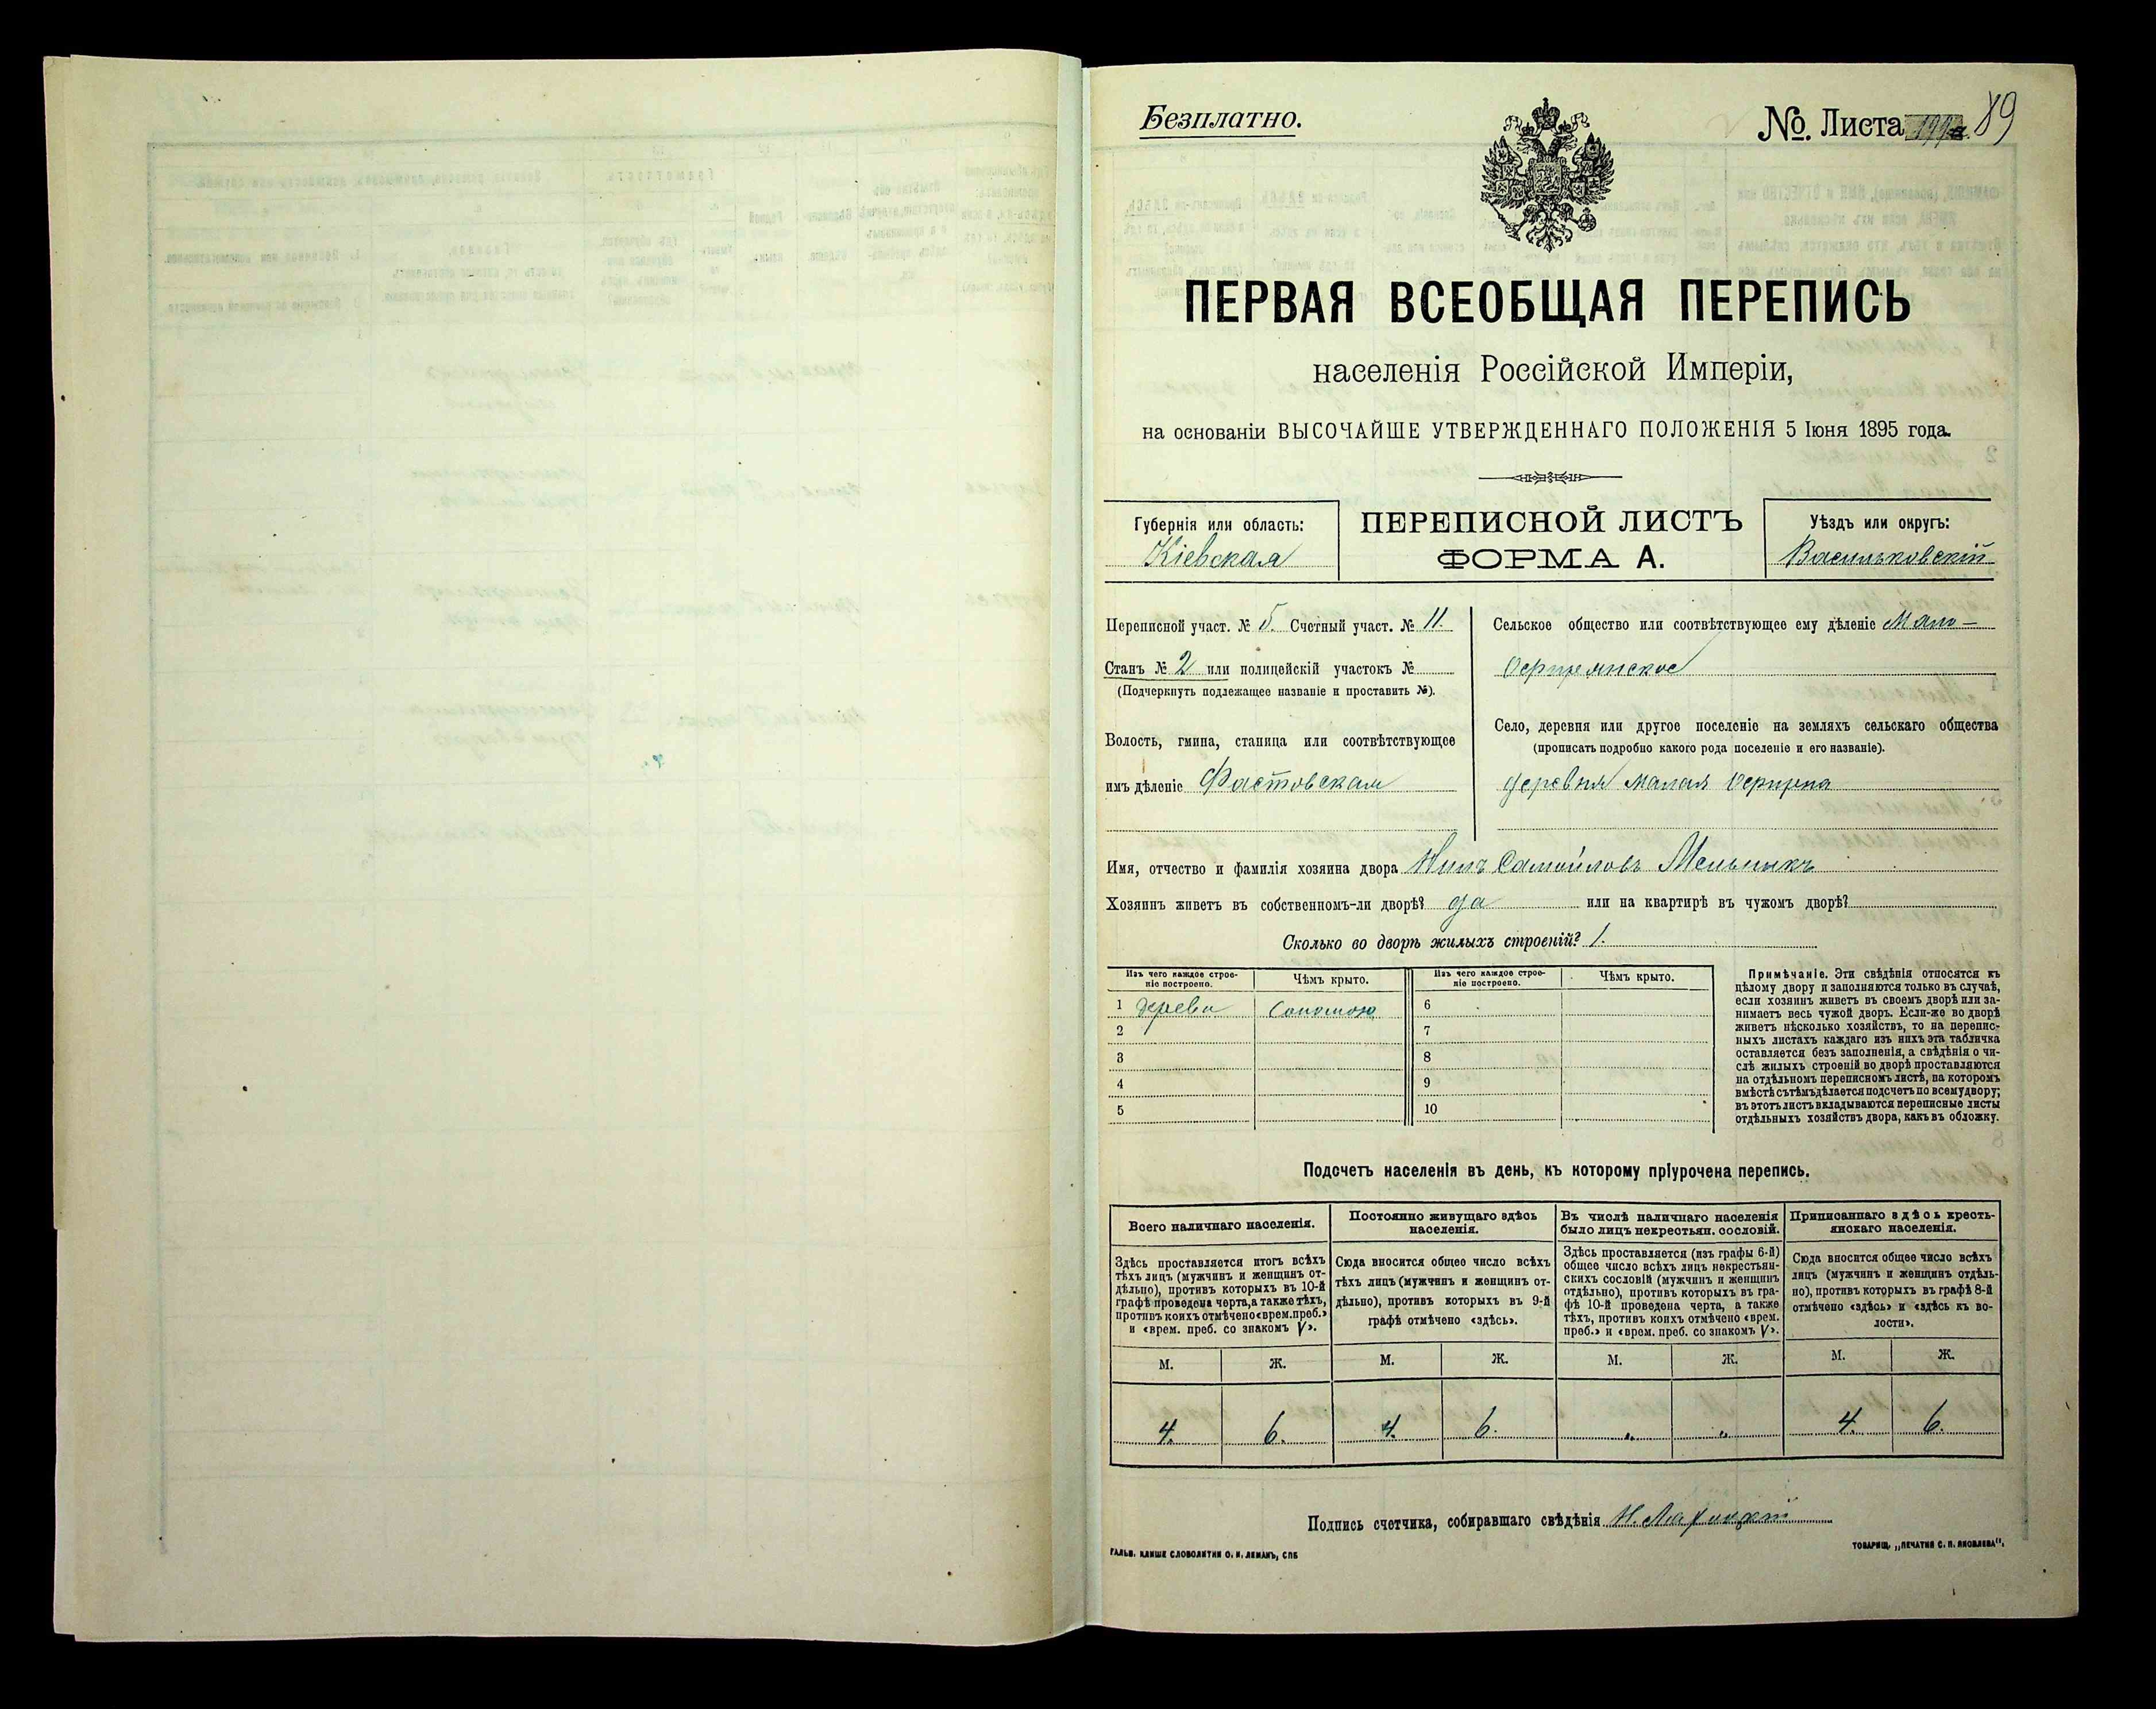 Безплатно.
№ Листа 89
ПЕРВАЯ ВСЕОБЩАЯ ПЕРЕПИСЬ
населенія Россійской Имперіи,
на основаніи ВЫСОЧАЙШЕ УТВЕРЖДЕННАГО ПОЛОЖЕНІЯ 5 Іюня 1895 года.
Губернія или область:
Кіевская
ПЕРЕПИСНОЙ ЛИСТЪ
ФОРМА А.
Уѣздъ или округъ:
Васильковскій
Переписной участ. № 5. Счетный участ. № 11.
Станъ № 2 или полицейскій участокъ №
(Подчеркнуть подлежащее названіе и проставить №).
Волость, гмина, станица или соотвѣтствующее
имъ дѣленіе Фастовская
Сельское общество или соотвѣтствующее ему дѣленіе Мало-
Село, деревня или другое поселеніе на земляхъ сельскаго общества
(прописать подробно какого рода поселеніе и его названіе).
деревня Малая
Имя, отчество и фамилія хозяина двора Нилъ Самойловъ Мельникъ
Хозяинъ живетъ въ собственномъ-ли дворѣ? да или на квартирѣ въ чужомъ дворѣ?
Сколько во дворѣ жилыхъ строеній? 1.
Изъ чего каждое строе-
ніе построено.
Чѣмъ крыто.
1 дерева Соломою
2
3
4
5
Изъ чего каждое строе-
ніе построено.
Чѣмъ крыто.
6
7
8
9
10
Примѣчаніе. Эти свѣдѣнія относятся къ
цѣлому двору и заполняются только въ случаѣ,
если хозяинъ живетъ въ своемъ дворѣ или за-
нимаетъ весь чужой дворъ. Если-же во дворѣ
живетъ нѣсколько хозяйствъ, то на перепис-
ныхъ листахъ каждаго изъ нихъ эта табличка
оставляется безъ заполненія, а свѣдѣнія о чи-
слѣ жилыхъ строеній во дворѣ проставляются
на отдѣльномъ переписномъ листѣ, на которомъ
вмѣстѣ съ тѣмъ дѣлается подсчетъ по всему двору;
въ этотъ листъ вкладываются переписные листы
отдѣльныхъ хозяйствъ двора, какъ въ обложку.
Подсчетъ населенія въ день, къ которому пріурочена перепись.
Всего наличнаго населенія.
Здѣсь проставляется итогъ всѣхъ
тѣхъ лицъ (мужчинъ и женщинъ от-
дѣльно), противъ которыхъ въ 10-й
графѣ проведена черта, а также тѣхъ,
противъ коихъ отмѣчено «врем. преб.»
и «врем. преб. со знакомъ V».
М. Ж.
4. 6.
Постоянно живущаго здѣсь
населенія.
Сюда вносится общее число всѣхъ
тѣхъ лицъ (мужчинъ и женщинъ от-
дѣльно), противъ которыхъ въ 9-й
графѣ отмѣчено «здѣсь».
М. Ж.
4. 6.
Въ числѣ наличнаго населенія
было лицъ некрестьян. сословій.
Здѣсь проставляется (изъ графы 6-й)
общее число всѣхъ лицъ некрестьян-
скихъ сословій (мужчинъ и женщинъ
отдѣльно), противъ которыхъ въ гра-
фѣ 10-й проведена черта, а также
тѣхъ, противъ коихъ отмѣчено «врем.
преб.» и «врем. преб. со знакомъ V».
М. Ж.
„ „
Приписаннаго здѣсь кресть-
янскаго населенія.
Сюда вносится общее число всѣхъ
лицъ (мужчинъ и женщинъ отдѣль-
но), противъ которыхъ въ графѣ 8-й
отмѣчено «здѣсь» и «здѣсь къ во-
лости».
М. Ж.
4. 6.
Подпись счетчика, собиравшаго свѣдѣнія Н.
ГАЛЬВ. КЛИШЕ СЛОВОЛИТНИ О. И. ЛЕМАНЪ, СПБ
ТОВАРИЩ. „ПЕЧАТНЯ С. П. ЯКОВЛЕВА“.